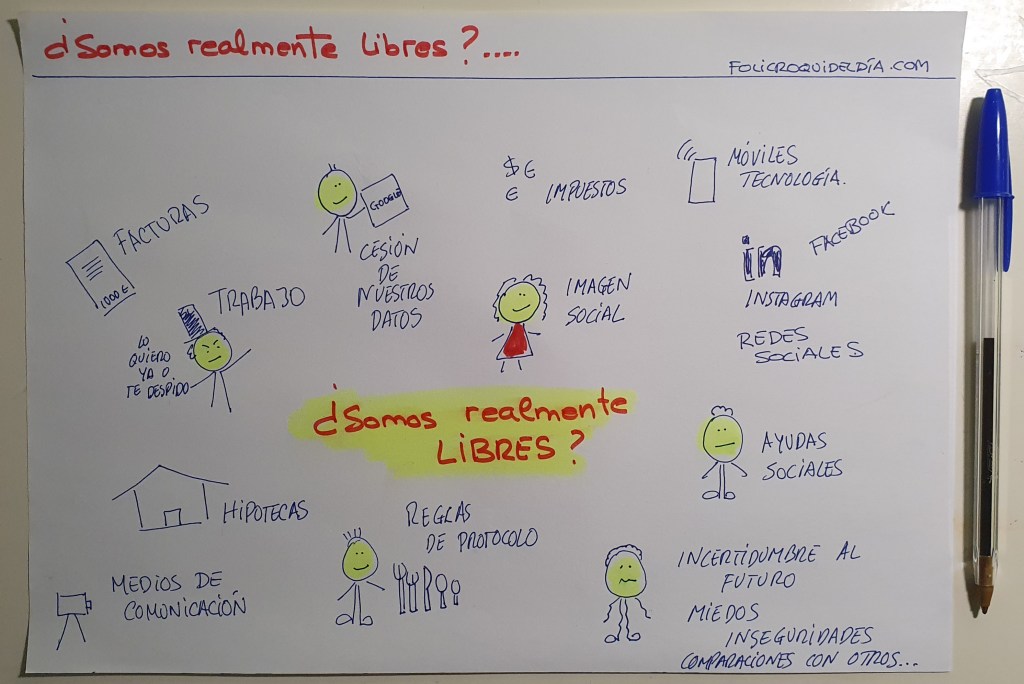 ¿Somos realmente Libres?....
FOLICROQUIDELDÍA.COM
FACTURAS
1000€
GOOGLE
CESIÓN
DE
NUESTROS
DATOS
$ €
€ IMPUESTOS
MÓVILES
TECNOLOGÍA.
in FACEBOOK
INSTAGRAM
REDES
SOCIALES
TRABAJO
LO
QUIERO
YA O
TE DESPIDO
IMAGEN
SOCIAL
¿Somos realmente
LIBRES?
AYUDAS
SOCIALES
HIPOTECAS
REGLAS
DE PROTOCOLO
MEDIOS DE
COMUNICACIÓN
INCERTIDUMBRE AL
FUTURO
MIEDOS
INSEGURIDADES
COMPARACIONES CON OTROS...